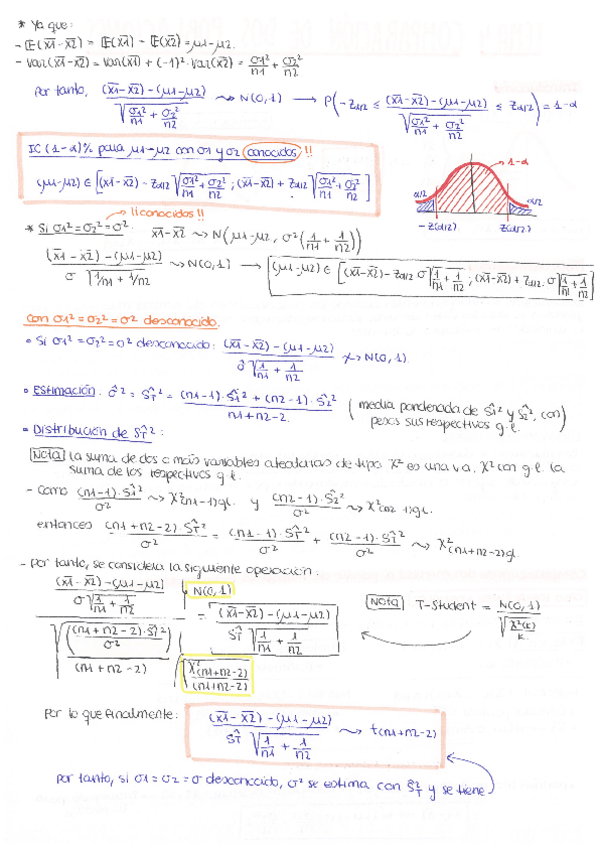 * Ya que:
- E(x̄1-x̄2) = E(x̄1) - E(x̄2) = μ1-μ2.
- Var(x̄1-x̄2) = Var(x̄1) + (-1)². Var(x̄2) = σ1²/n1 + σ2²/n2
Por tanto, ((x̄1-x̄2) - (μ1-μ2)) / √(σ1²/n1 + σ2²/n2) ⤳ N(0,1) → P(-zα/2 ≤ ((x̄1-x̄2) - (μ1-μ2)) / √(σ1²/n1 + σ2²/n2) ≤ zα/2) = 1-α
IC (1-α)% para μ1-μ2 con σ1 y σ2 conocidos!!
(μ1-μ2) ∈ [(x̄1-x̄2) - zα/2 √(σ1²/n1 + σ2²/n2) ; (x̄1-x̄2) + zα/2 √(σ1²/n1 + σ2²/n2)]
1-α
α/2
α/2
-z(α/2)
z(α/2)
¡¡conocidos!!
* Si σ1² = σ2² = σ². x̄1-x̄2 ⤳ N(μ1-μ2, σ²(1/n1 + 1/n2))
((x̄1-x̄2) - (μ1-μ2)) / (σ √(1/n1 + 1/n2)) ⤳ N(0,1) → (μ1-μ2) ∈ [(x̄1-x̄2) - zα/2 σ √(1/n1 + 1/n2) ; (x̄1-x̄2) + zα/2. σ √(1/n1 + 1/n2)]
Con σ1² = σ2² = σ² desconocido.
• Si σ1² = σ2² = σ² desconocido: ((x̄1-x̄2) - (μ1-μ2)) / (σ̂ √(1/n1 + 1/n2)) ⤳̸ N(0,1).
• Estimación. σ̂² = ŜT² = ((n1-1). Ŝ1² + (n2-1). Ŝ2²) / (n1+n2-2) (media ponderada de Ŝ1² y Ŝ2², con
pesos sus respectivos g.l.)
• Distribución de ŜT²:
Nota La suma de dos o más variables aleatorias de tipo χ² es una v.a. χ² con g.l. la
suma de los respectivos g.l.
- Como ((n1-1). Ŝ1²)/σ² ⤳ χ²(n1-1)gl. y ((n2-1). Ŝ2²)/σ² ⤳ χ²(n2-1)gl.
entonces ((n1+n2-2). ŜT²)/σ² = ((n1-1). Ŝ1²)/σ² + ((n2-1). Ŝ2²)/σ² ⤳ χ²(n1+n2-2)gl
- Por tanto, se considera la siguiente operación:
(((x̄1-x̄2) - (μ1-μ2)) / (σ √(1/n1 + 1/n2))) / √((((n1+n2-2). ŜT²)/σ²) / (n1+n2-2)) | N(0,1) / √(χ²(n1+n2-2)/(n1+n2-2)) = ((x̄1-x̄2) - (μ1-μ2)) / (ŜT √(1/n1 + 1/n2))
Nota T-Student = N(0,1) / √(χ²(k)/k)
Por lo que finalmente: ((x̄1-x̄2) - (μ1-μ2)) / (ŜT √(1/n1 + 1/n2)) ⤳ t(n1+n2-2)
Por tanto, si σ1 = σ2 = σ desconocido, σ² se estima con ŜT² y se tiene